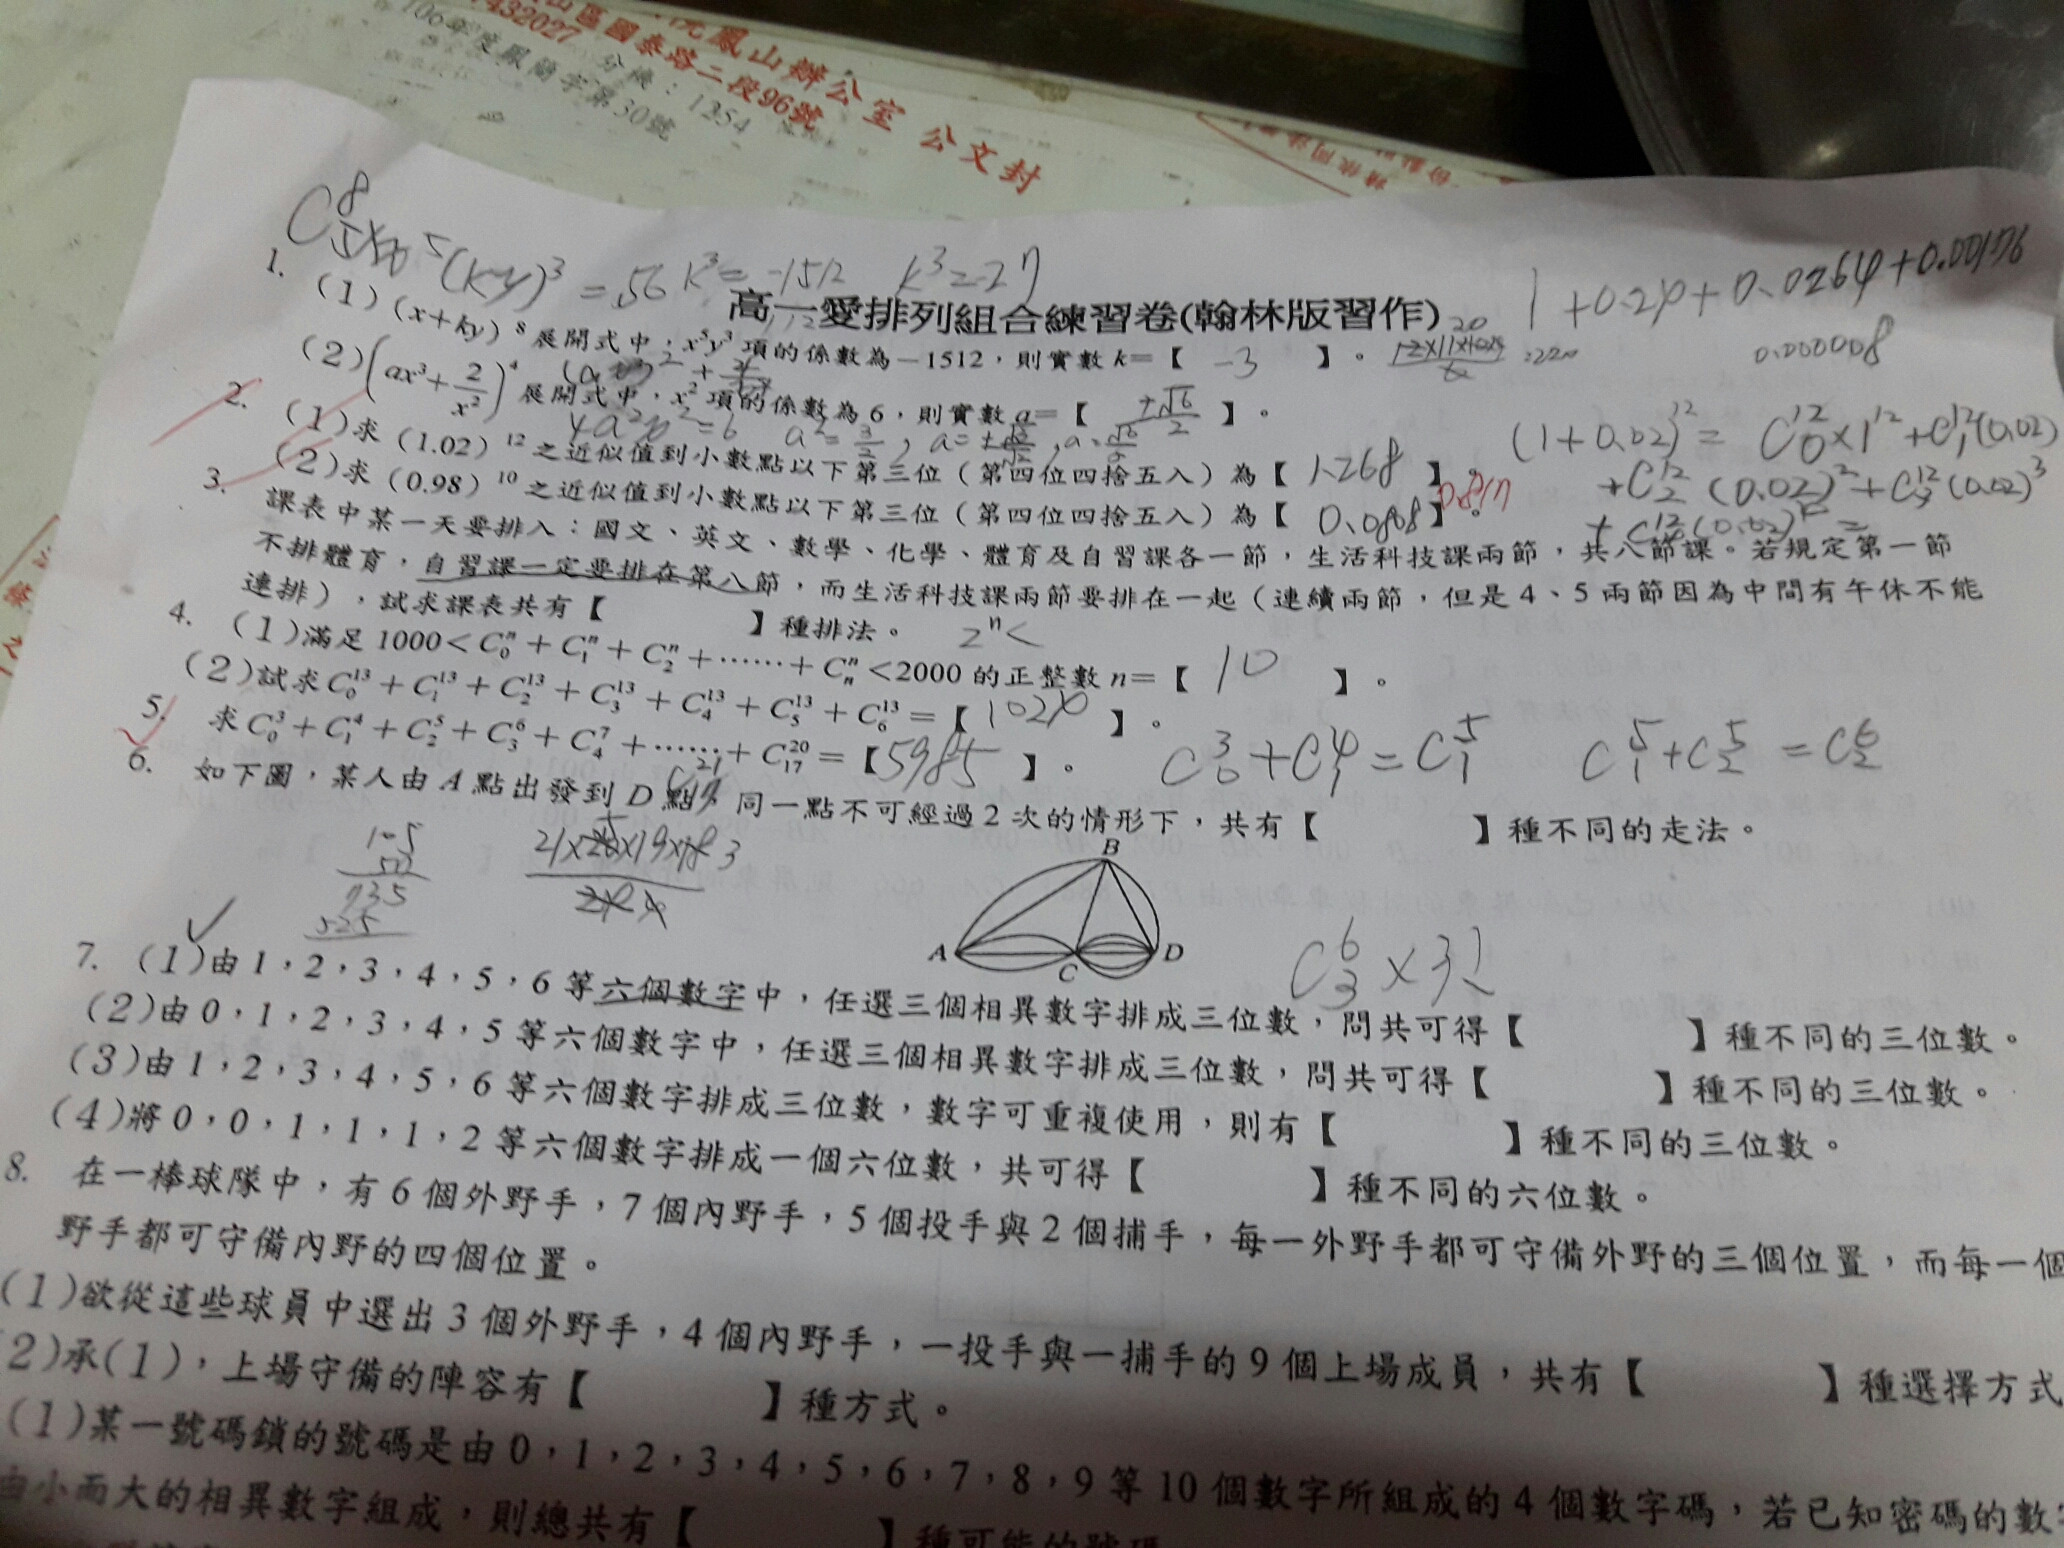 院鳳山辦公室 公文封
山區國泰路二段96號
7432027 分機：1254
106年度鳳簡字第30號
1 + 0.24 + 0.0264 + 0.00176
0.000008
56 k³ = -1512 k³ = -27
高一愛排列組合練習卷(翰林版習作)
1.
(1) (x+ky)⁸ 展開式中，x⁵y³ 項的係數為－1512，則實數 k=【 -3 】。
(2) (ax³+2/x²)⁴ 展開式中，x² 項的係數為 6，則實數 a=【 ±√6/2 】。
2. (1)求 (1.02)¹² 之近似值到小數點以下第三位（第四位四捨五入）為【 1.268 】。
(2)求 (0.98)¹⁰ 之近似值到小數點以下第三位（第四位四捨五入）為【 0.0808 】。 0.817
(1+0.02)¹² = C¹²₀×1¹² + C¹²₁(0.02)
+ C¹²₂ (0.02)² + C¹²₃ (0.02)³
3. 課表中某一天要排入：國文、英文、數學、化學、體育及自習課各一節，生活科技課兩節，共八節課。若規定第一節
不排體育，自習課一定要排在第八節，而生活科技課兩節要排在一起（連續兩節，但是 4、5 兩節因為中間有午休不能
連排），試求課表共有【 】種排法。
2ⁿ<
4. (1)滿足 1000< Cⁿ₀ + Cⁿ₁ + Cⁿ₂ +⋯⋯+ Cⁿₙ <2000 的正整數 n=【 10 】。
(2)試求 C¹³₀ + C¹³₁ + C¹³₂ + C¹³₃ + C¹³₄ + C¹³₅ + C¹³₆ =【 】。
5. 求 C³₀ + C⁴₁ + C⁵₂ + C⁶₃ + C⁷₄ +⋯⋯+ C²⁰₁₇ =【 5985 】。
C³₀ + C⁴₁ = C⁵₁ C⁵₁ + C⁵₂ = C⁶₂
6. 如下圖，某人由 A 點出發到 D 點，同一點不可經過 2 次的情形下，共有【 】種不同的走法。
105
735
525
21×20×19×18 3
B
A
C
D
C⁶₃ × 3!
7. (1)由 1，2，3，4，5，6 等六個數字中，任選三個相異數字排成三位數，問共可得【 】種不同的三位數。
(2)由 0，1，2，3，4，5 等六個數字中，任選三個相異數字排成三位數，問共可得【 】種不同的三位數。
(3)由 1，2，3，4，5，6 等六個數字排成三位數，數字可重複使用，則有【 】種不同的三位數。
(4)將 0，0，1，1，1，2 等六個數字排成一個六位數，共可得【 】種不同的六位數。
8. 在一棒球隊中，有 6 個外野手，7 個內野手，5 個投手與 2 個捕手，每一外野手都可守備外野的三個位置，而每一個
野手都可守備內野的四個位置。
(1)欲從這些球員中選出 3 個外野手，4 個內野手，一投手與一捕手的 9 個上場成員，共有【 】種選擇方式
2)承(1)，上場守備的陣容有【 】種方式。
(1)某一號碼鎖的號碼是由 0，1，2，3，4，5，6，7，8，9 等 10 個數字所組成的 4 個數字碼，若已知密碼的數字
由小而大的相異數字組成，則總共有【 】種可能的號碼